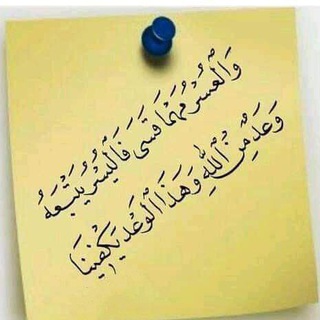 وَالْعُسْرُ مَهْمَا قَسَى فَالْيُسْرُ يَتْبَعُهُ
وَعْدٌ مِنَ اللَّهِ وَهَذَا الْوَعْدُ يَكْفِينَا